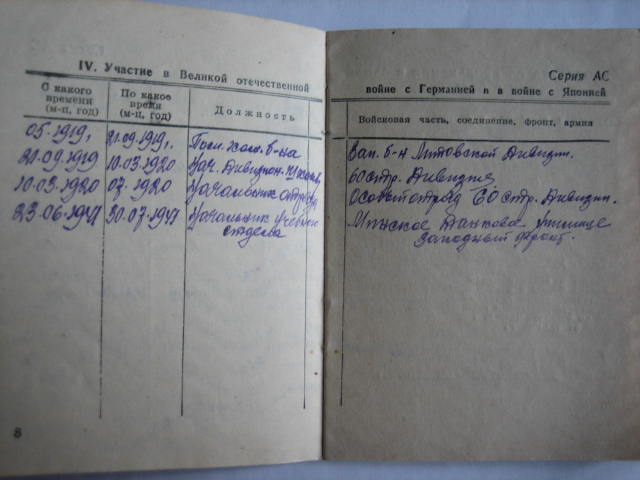 IV. Участие в Великой отечественной
С какого времени (м-ц, год)
По какое время (м-ц, год)
Должность
05.1919г. 21.09.1919г. Пом. ком. б-на
21.09.1919 10.03.1920 Нач. Дивизион. школы
10.03.1920 07.1920 Начальник отряда
23.06.1941 30.07.1941 Начальник учебн
отдела
8
Серия АС
войне с Германией и в войне с Японией
Войсковая часть, соединение, фронт, армия
Зап. б-н Литовской Дивизии.
60 стр. Дивизия
Особый отряд 60 стр. Дивизии.
Минское Танковое училище
Западный фронт.